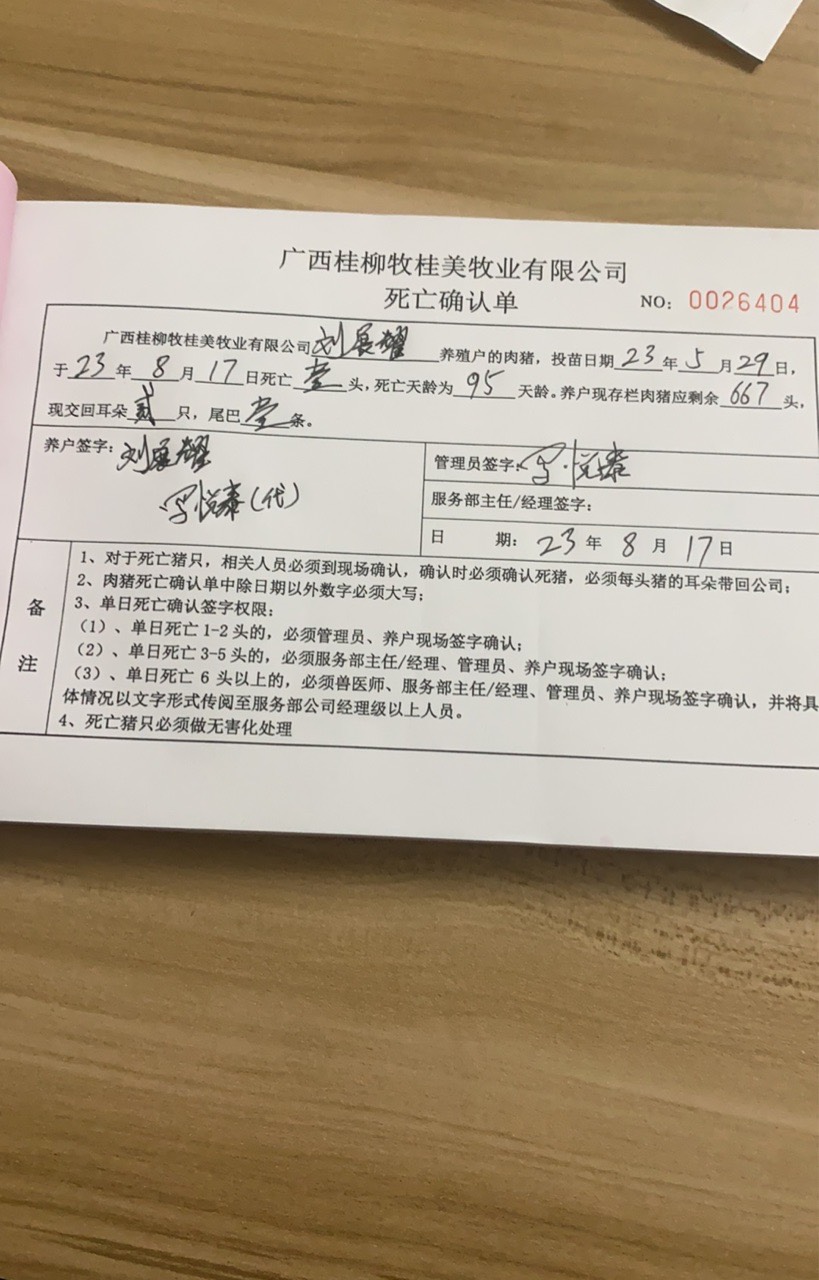 广西桂柳牧桂美牧业有限公司
死亡确认单 NO: 0026404
广西桂柳牧桂美牧业有限公司刘展耀养殖户的肉猪，投苗日期23年5月29日，
于23年8月17日死亡壹头，死亡天龄为95天龄。养户现存栏肉猪应剩余667头，
现交回耳朵贰只，尾巴壹条。
养户签字：刘展耀
悦泰（代）
管理员签字：悦泰
服务部主任/经理签字：
日 期：23年8月17日
备注
1、对于死亡猪只，相关人员必须到现场确认，确认时必须确认死猪，必须每头猪的耳朵带回公司；
2、肉猪死亡确认单中除日期以外数字必须大写；
3、单日死亡确认签字权限：
（1）、单日死亡1-2头的，必须管理员、养户现场签字确认；
（2）、单日死亡3-5头的，必须服务部主任/经理、管理员、养户现场签字确认；
（3）、单日死亡6头以上的，必须兽医师、服务部主任/经理、管理员、养户现场签字确认，并将具
体情况以文字形式传阅至服务部公司经理级以上人员。
4、死亡猪只必须做无害化处理